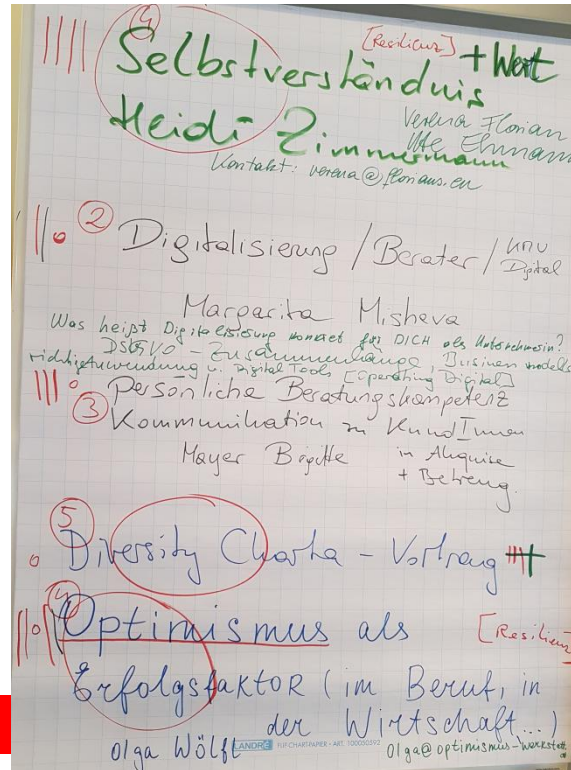 ④ [Resilienz] + Wert
Selbstverständnis
Heidi Zimmermann
Verena Florian
Ute Ehmann
Kontakt: verena@florians.eu
② Digitalisierung / Berater / KMU Digital
Margarita Misheva
Was heißt Digitalisierung konkret für DICH als Unternehmerin?
DSGVO - Zusammenhänge, Business modelle
richtige Anwendung v. Digital Tools [Operating Digital]
Persönliche Beratungskompetenz
③ Kommunikation zu KundInnen
Mayer Brigitte in Akquise
+ Betreug.
⑤
Diversity Charta - Vortrag
④
Optimismus als [Resilienz]
Erfolgsfaktor (im Beruf, in
der Wirtschaft...)
Olga Wölfl
LANDRÉ FLIPCHART-PAPIER - ART. 100050592
Olga@optimismus-werkstatt.